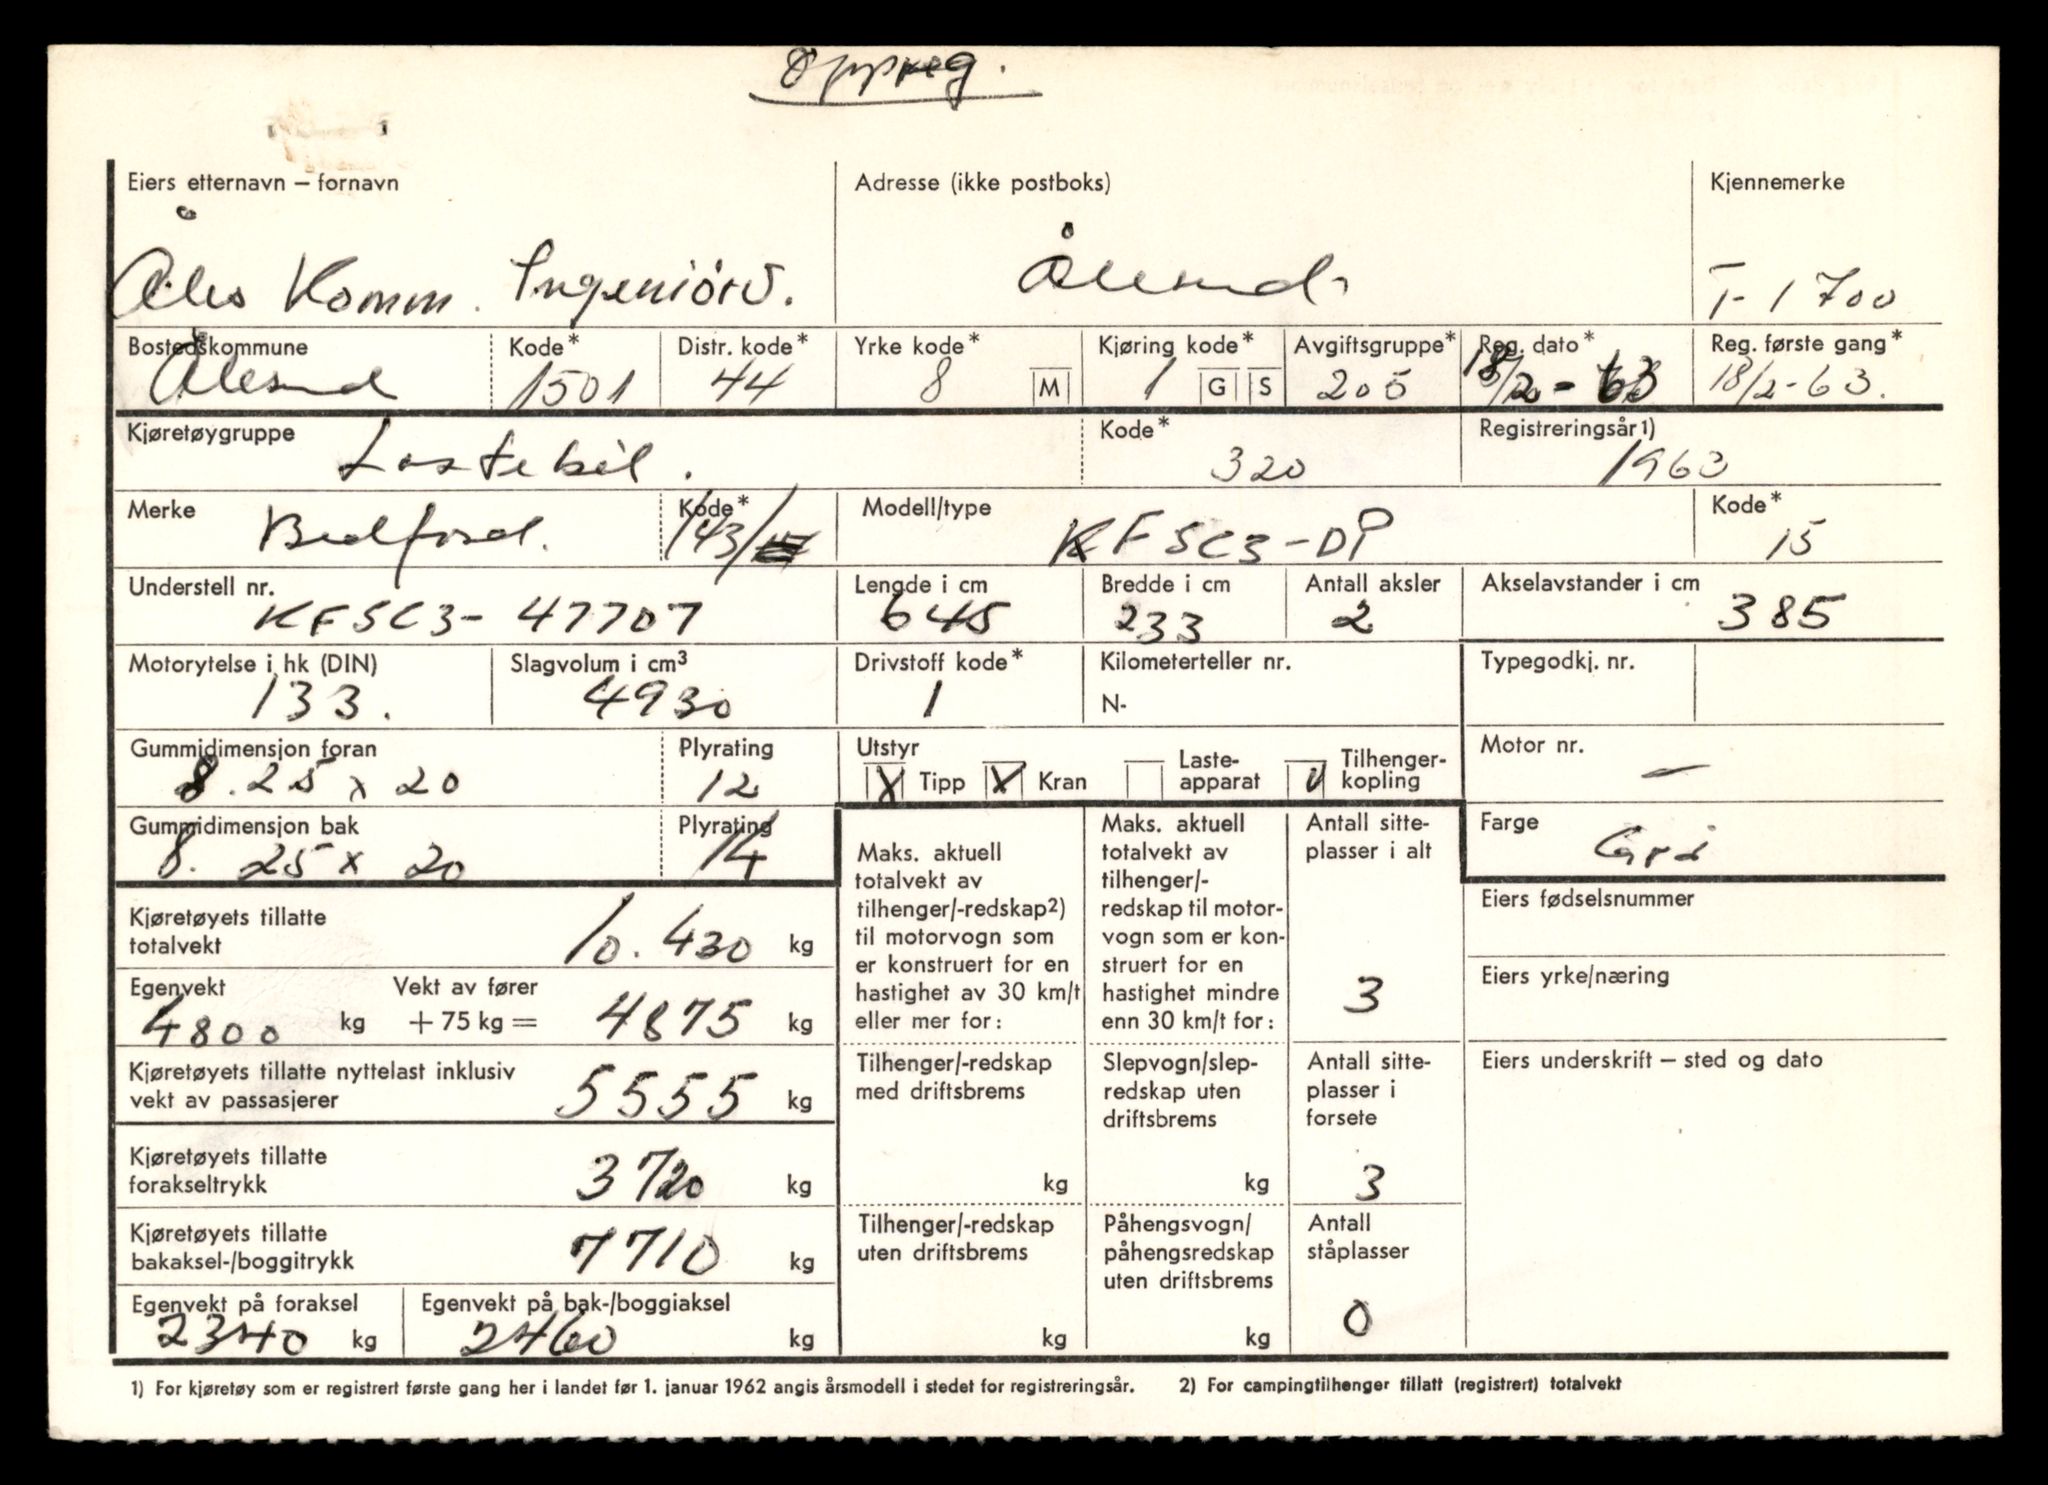 Oppreg.
Eiers etternavn – fornavn Adresse (ikke postboks) Kjennemerke
Åles Komm. Ingeniörv. Ålesund T-1700
Bostedskommune Kode* Distr. kode* Yrke kode* Kjøring kode* Avgiftsgruppe* Reg. dato* Reg. første gang*
Ålesund 1501 44 8 M 1 G S 205 18/2-63 18/2-63.
Kjøretøygruppe Kode* Registreringsår1)
Lastebil. 320 1963
Merke Kode* Modell/type Kode*
Bedford. 143/ KFSC3-DP 15
Understell nr. Lengde i cm Bredde i cm Antall aksler Akselavstander i cm
KFSC3- 47707 645 233 2 385
Motorytelse i hk (DIN) Slagvolum i cm3 Drivstoff kode* Kilometerteller nr. Typegodkj. nr.
133. 4930 1 N-
Gummidimensjon foran Plyrating Utstyr Motor nr.
8.25 x 20 12 X Tipp X Kran Laste-apparat V Tilhenger-kopling —
Gummidimensjon bak Plyrating Farge
8.25 x 20 14 Grå
Maks. aktuell
totalvekt av
tilhenger/-redskap2)
til motorvogn som
er konstruert for en
hastighet av 30 km/t
eller mer for:
Maks. aktuell
totalvekt av
tilhenger/-
redskap til motor-
vogn som er kon-
struert for en
hastighet mindre
enn 30 km/t for:
Antall sitte-
plasser i alt
3
Kjøretøyets tillatte
totalvekt 10.430 kg
Eiers fødselsnummer
Egenvekt Vekt av fører
4800 kg + 75 kg = 4875 kg
Eiers yrke/næring
Kjøretøyets tillatte nyttelast inklusiv
vekt av passasjerer 5555 kg
Tilhenger/-redskap
med driftsbrems
kg
Slepvogn/slep-
redskap uten
driftsbrems
kg
Antall sitte-
plasser i
forsete
3
Eiers underskrift – sted og dato
Kjøretøyets tillatte
forakseltrykk 3720 kg
Kjøretøyets tillatte
bakaksel-/boggitrykk 7710 kg
Tilhenger/-redskap
uten driftsbrems
kg
Påhengsvogn/
påhengsredskap
uten driftsbrems
kg
Antall
ståplasser
0
Egenvekt på foraksel Egenvekt på bak-/boggiaksel
2340 kg 2460 kg
1) For kjøretøy som er registrert første gang her i landet før 1. januar 1962 angis årsmodell i stedet for registreringsår. 2) For campingtilhenger tillatt (registrert) totalvekt